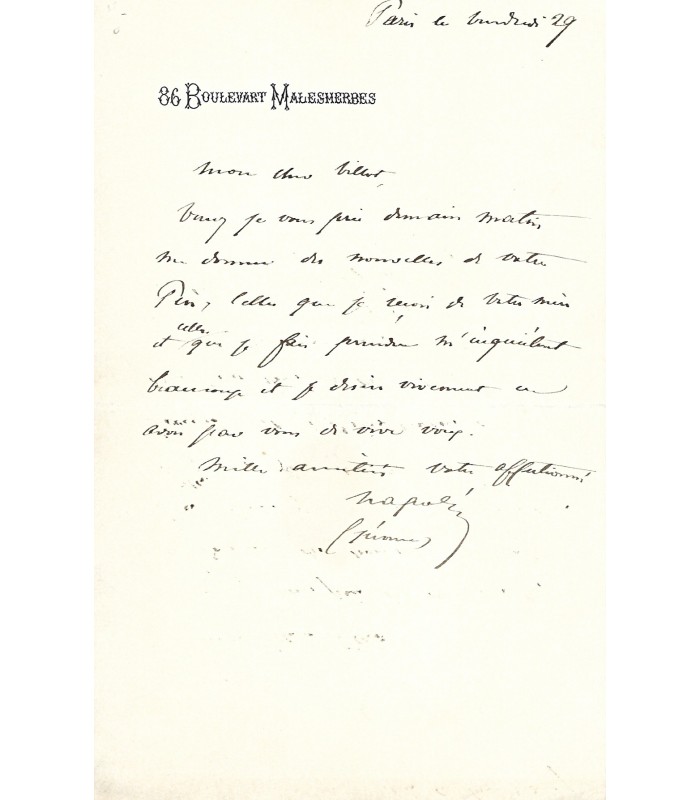 Paris le vendredi 29
86 BOULEVART MALESHERBES
Mon cher Villot,
Venez je vous prie demain matin
me donner des nouvelles de votre
Père, celles que je reçois de votre mère
et celles que je fais prendre m'inquiètent
beaucoup et je désire vivement en
avoir par vous de vive voix.
Mille amitiés votre affectionné
Napoléon
(Jérôme)